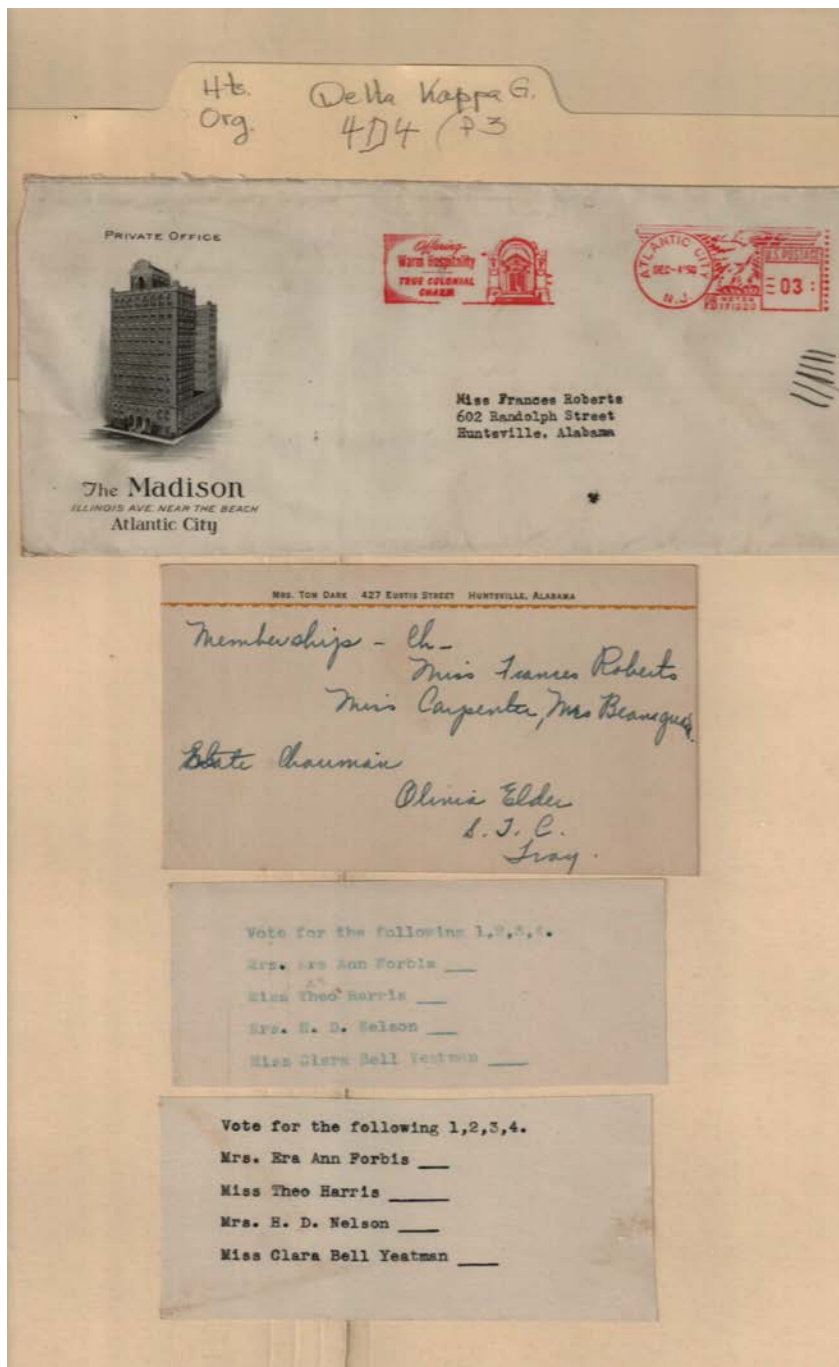 Hts. Delta Kappa G.
Org. 4D4 (P3
PRIVATE OFFICE
Offering
Warm Hospitality
TRUE COLONIAL
CHARM
ATLANTIC CITY
DEC-4'50
N.J.
U.S. POSTAGE
03
METER
Miss Frances Roberts
602 Randolph Street
Huntsville, Alabama
The Madison
ILLINOIS AVE. NEAR THE BEACH
Atlantic City
MRS. TOM DARK 427 EUSTIS STREET HUNTSVILLE, ALABAMA
Memberships - Ch-
Miss Frances Roberts
Miss Carpenter, Mrs
State Chairman
Olivia Elder
S. T. C.
Troy.
Vote for the following 1,2,3,4.
Mrs. Era Ann Forbis ___
Miss Theo Harris ___
Mrs. H. D. Nelson ___
Miss Clara Bell Yeatman ____
Vote for the following 1,2,3,4.
Mrs. Era Ann Forbis ___
Miss Theo Harris ______
Mrs. H. D. Nelson ____
Miss Clara Bell Yeatman ____